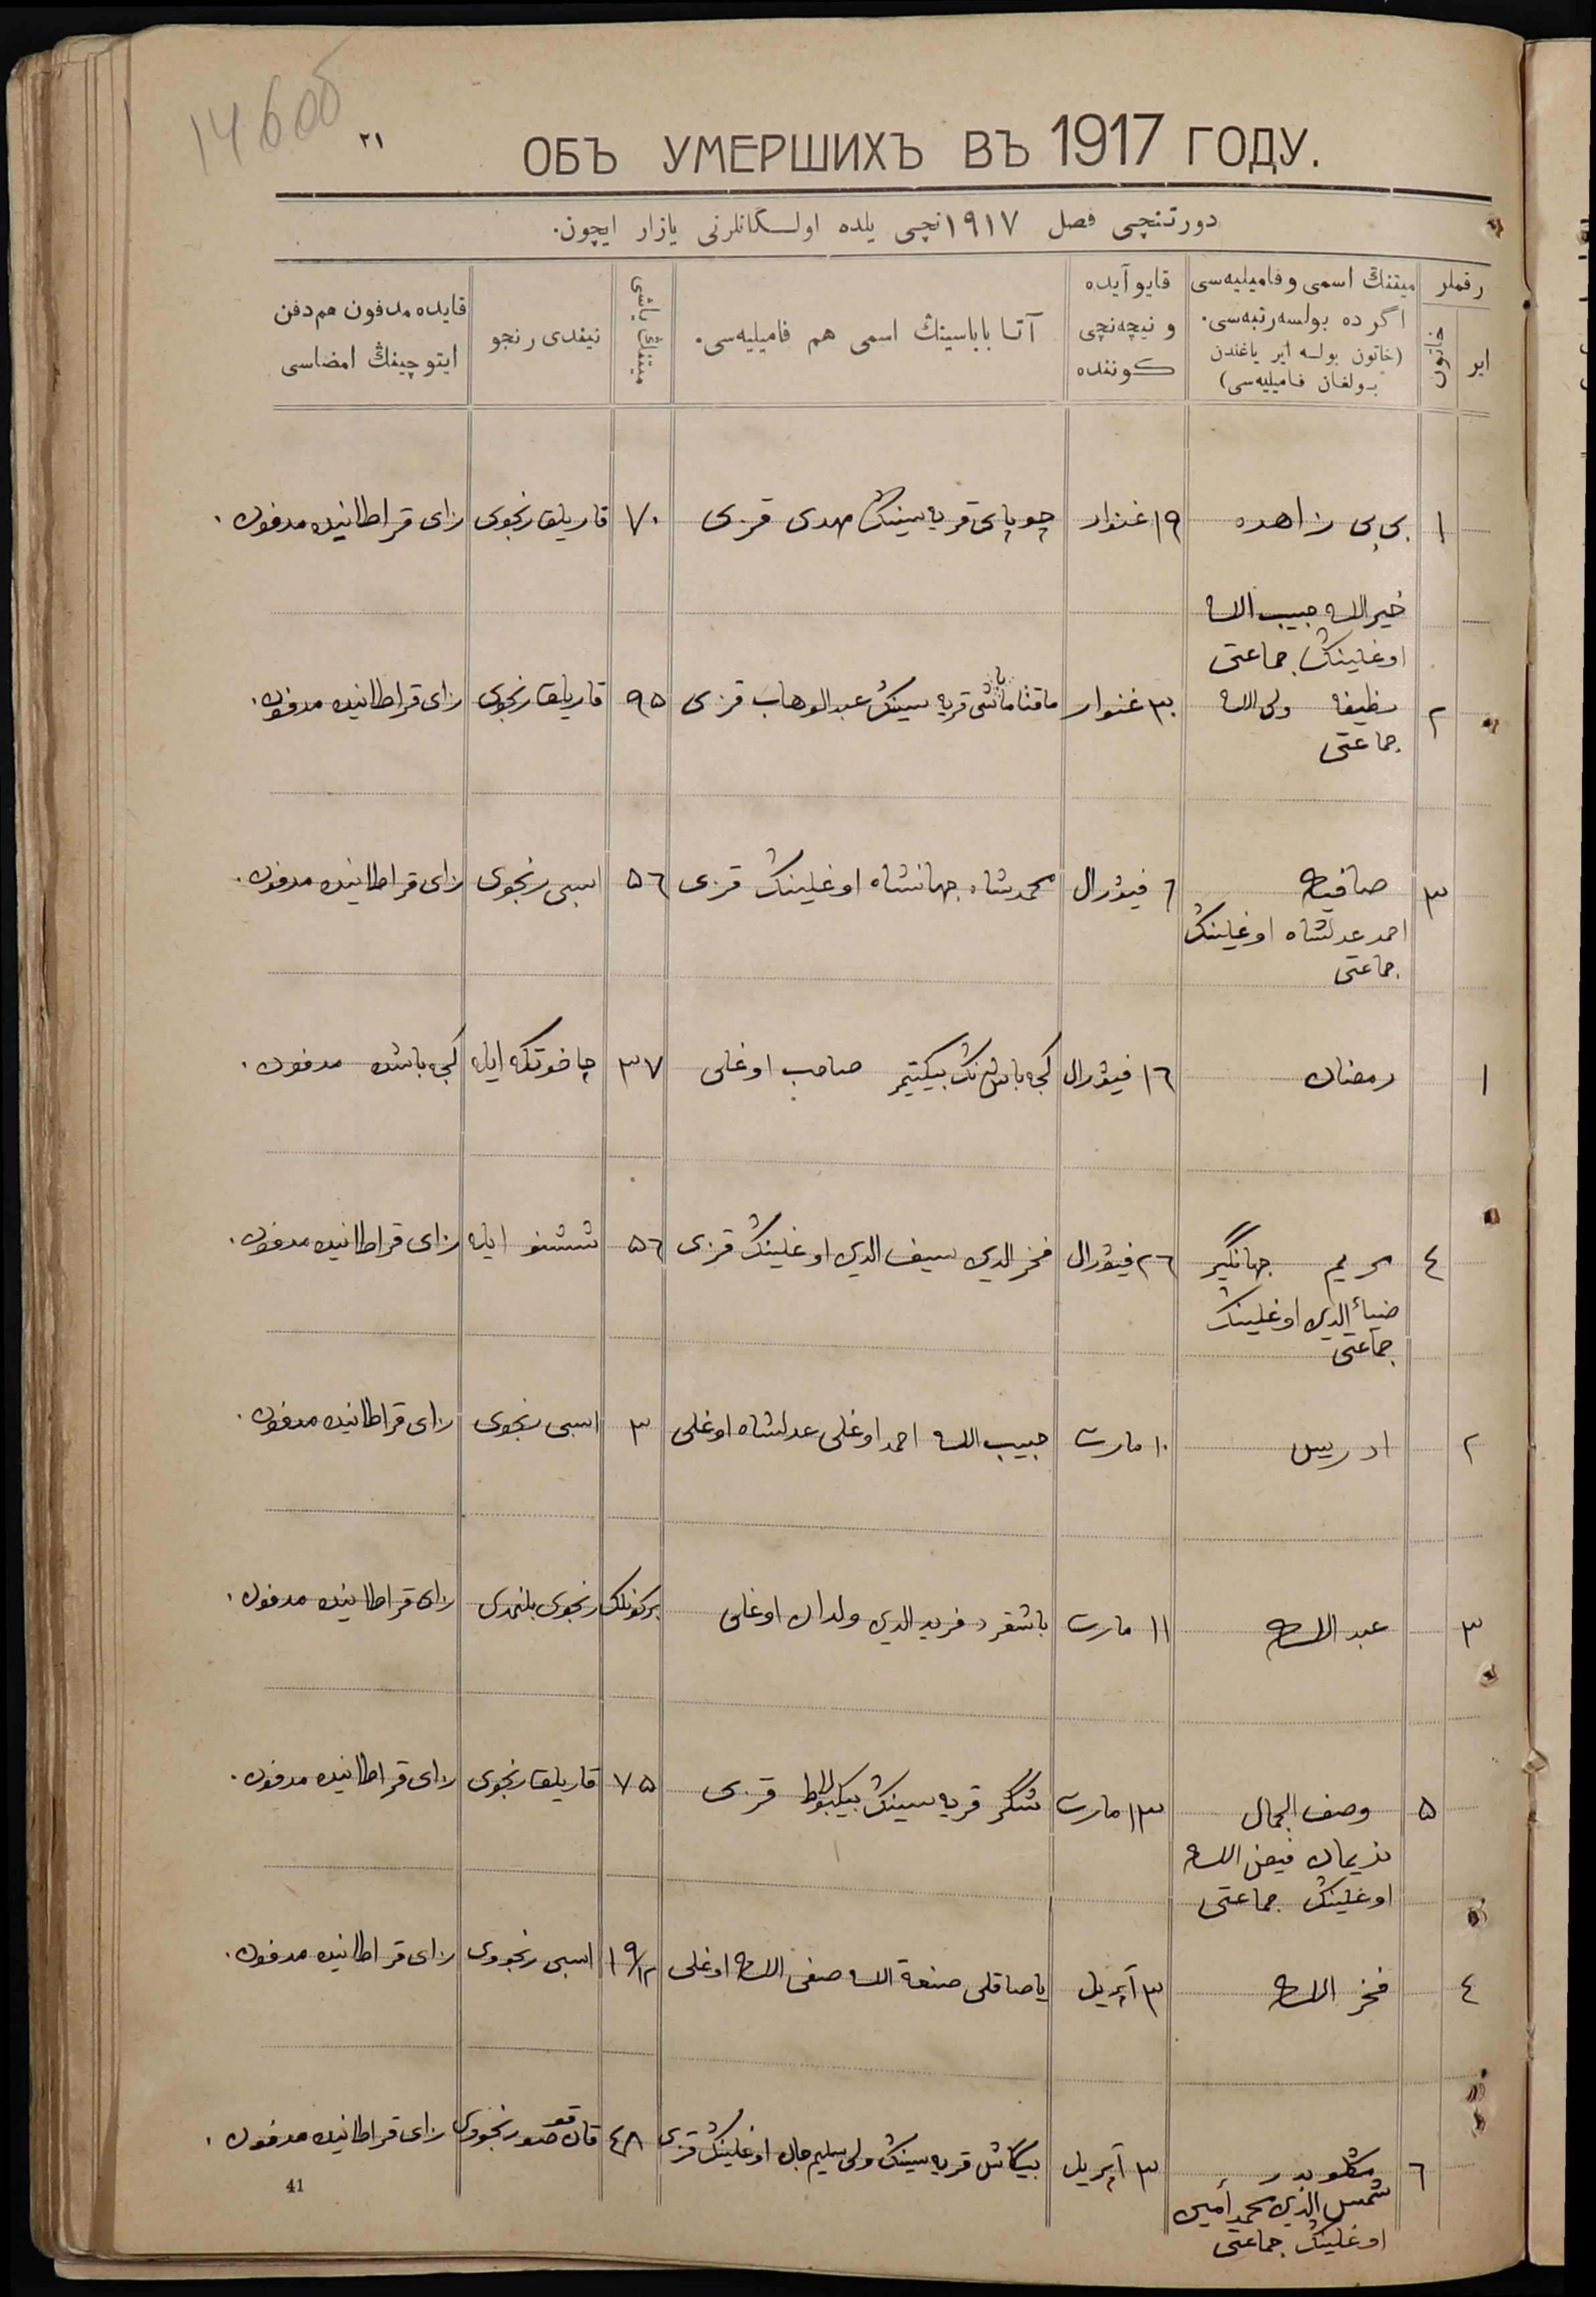 14600
٢١
ОБЪ УМЕРШИХЪ ВЪ 1917 ГОДУ.
دورتنچی فصل ١٩١٧نچی یلده اولسڭانلرنی یازار ایچون.
رقملر
ایر
خاتون
میتنڭ اسمی وفامیلیه‌سی
اگرده بولسه‌رتبه‌سی.
(خاتون بولسه ایر یاغندن
بولغان فامیلیه‌سی)
قایو آیده
و نیچه‌نچی
کوننده
آتا باباسینڭ اسمی هم فامیلیه‌سی.
میتنڭ یاشی
نیندی رنجو
قایده مدفون هم‌دفن
ایتوچینڭ امضاسی
١ بی بی زاهده ١٩ غنوار چوپای قریه سینڭ مهدی قزی ٧٠ قاریلق رنجوی زای قراطاینده مدفون.
خیرالله حبیب الله
اوغلینڭ جماعتی
٢ نظیفه ولی الله ٣٠ غنوار قریه سینڭ عبدالوهاب قزی ٩٥ قاریلق رنجوی زای قراطاینده مدفون.
جماعتی
٣ صافیه ٦ فیورال محمدشاه جهانشاه اوغلینڭ قزی ٥٦ اسبی رنجوی زای قراطاینده مدفون.
احمد عدلشاه اوغلینڭ
جماعتی
١ رمضان ١٦ فیورال کچه باش نڭ بیکتیمر صاحب اوغلی ٣٧ چاخوتکه ایله کچه باشده مدفون.
٤ مریم جهانگیر ٢٦ فیورال فخرالدین سیف الدین اوغلینڭ قزی ٥٦ ششنو ایله زای قراطاینده مدفون.
ضیاءالدین اوغلینڭ
جماعتی
٢ ادریس ١٠ مارت حبیب الله احمد اوغلی عدلشاه اوغلی ٣ اسبی رنجوی زای قراطاینده مدفون.
٣ عبد الله ١١ مارت باشقرد فرید الدین ولدان اوغلی برکونلک رنجوی بلنمدی زای قراطاینده مدفون.
٥ وصف الجمال ١٣ مارت شگر قریه سینڭ بیکبولاط قزی ٧٥ قاریلق رنجوی زای قراطاینده مدفون.
نریمان فیض الله
اوغلینڭ جماعتی
٤ فخر الله ٣ آپریل یاصاقلی صنعة الله صفی الله اوغلی ١ ٩/١٢ اسبی رنجووی زای قراطاینده مدفون.
٦ ٣ آپریل بیکاش قریه سینڭ ولی سلیم جان اوغلینڭ قزی ٤٨ قان قوصو رنجووی زای قراطاینده مدفون.
شمس الدین محمد أمین
اوغلینڭ جماعتی
41